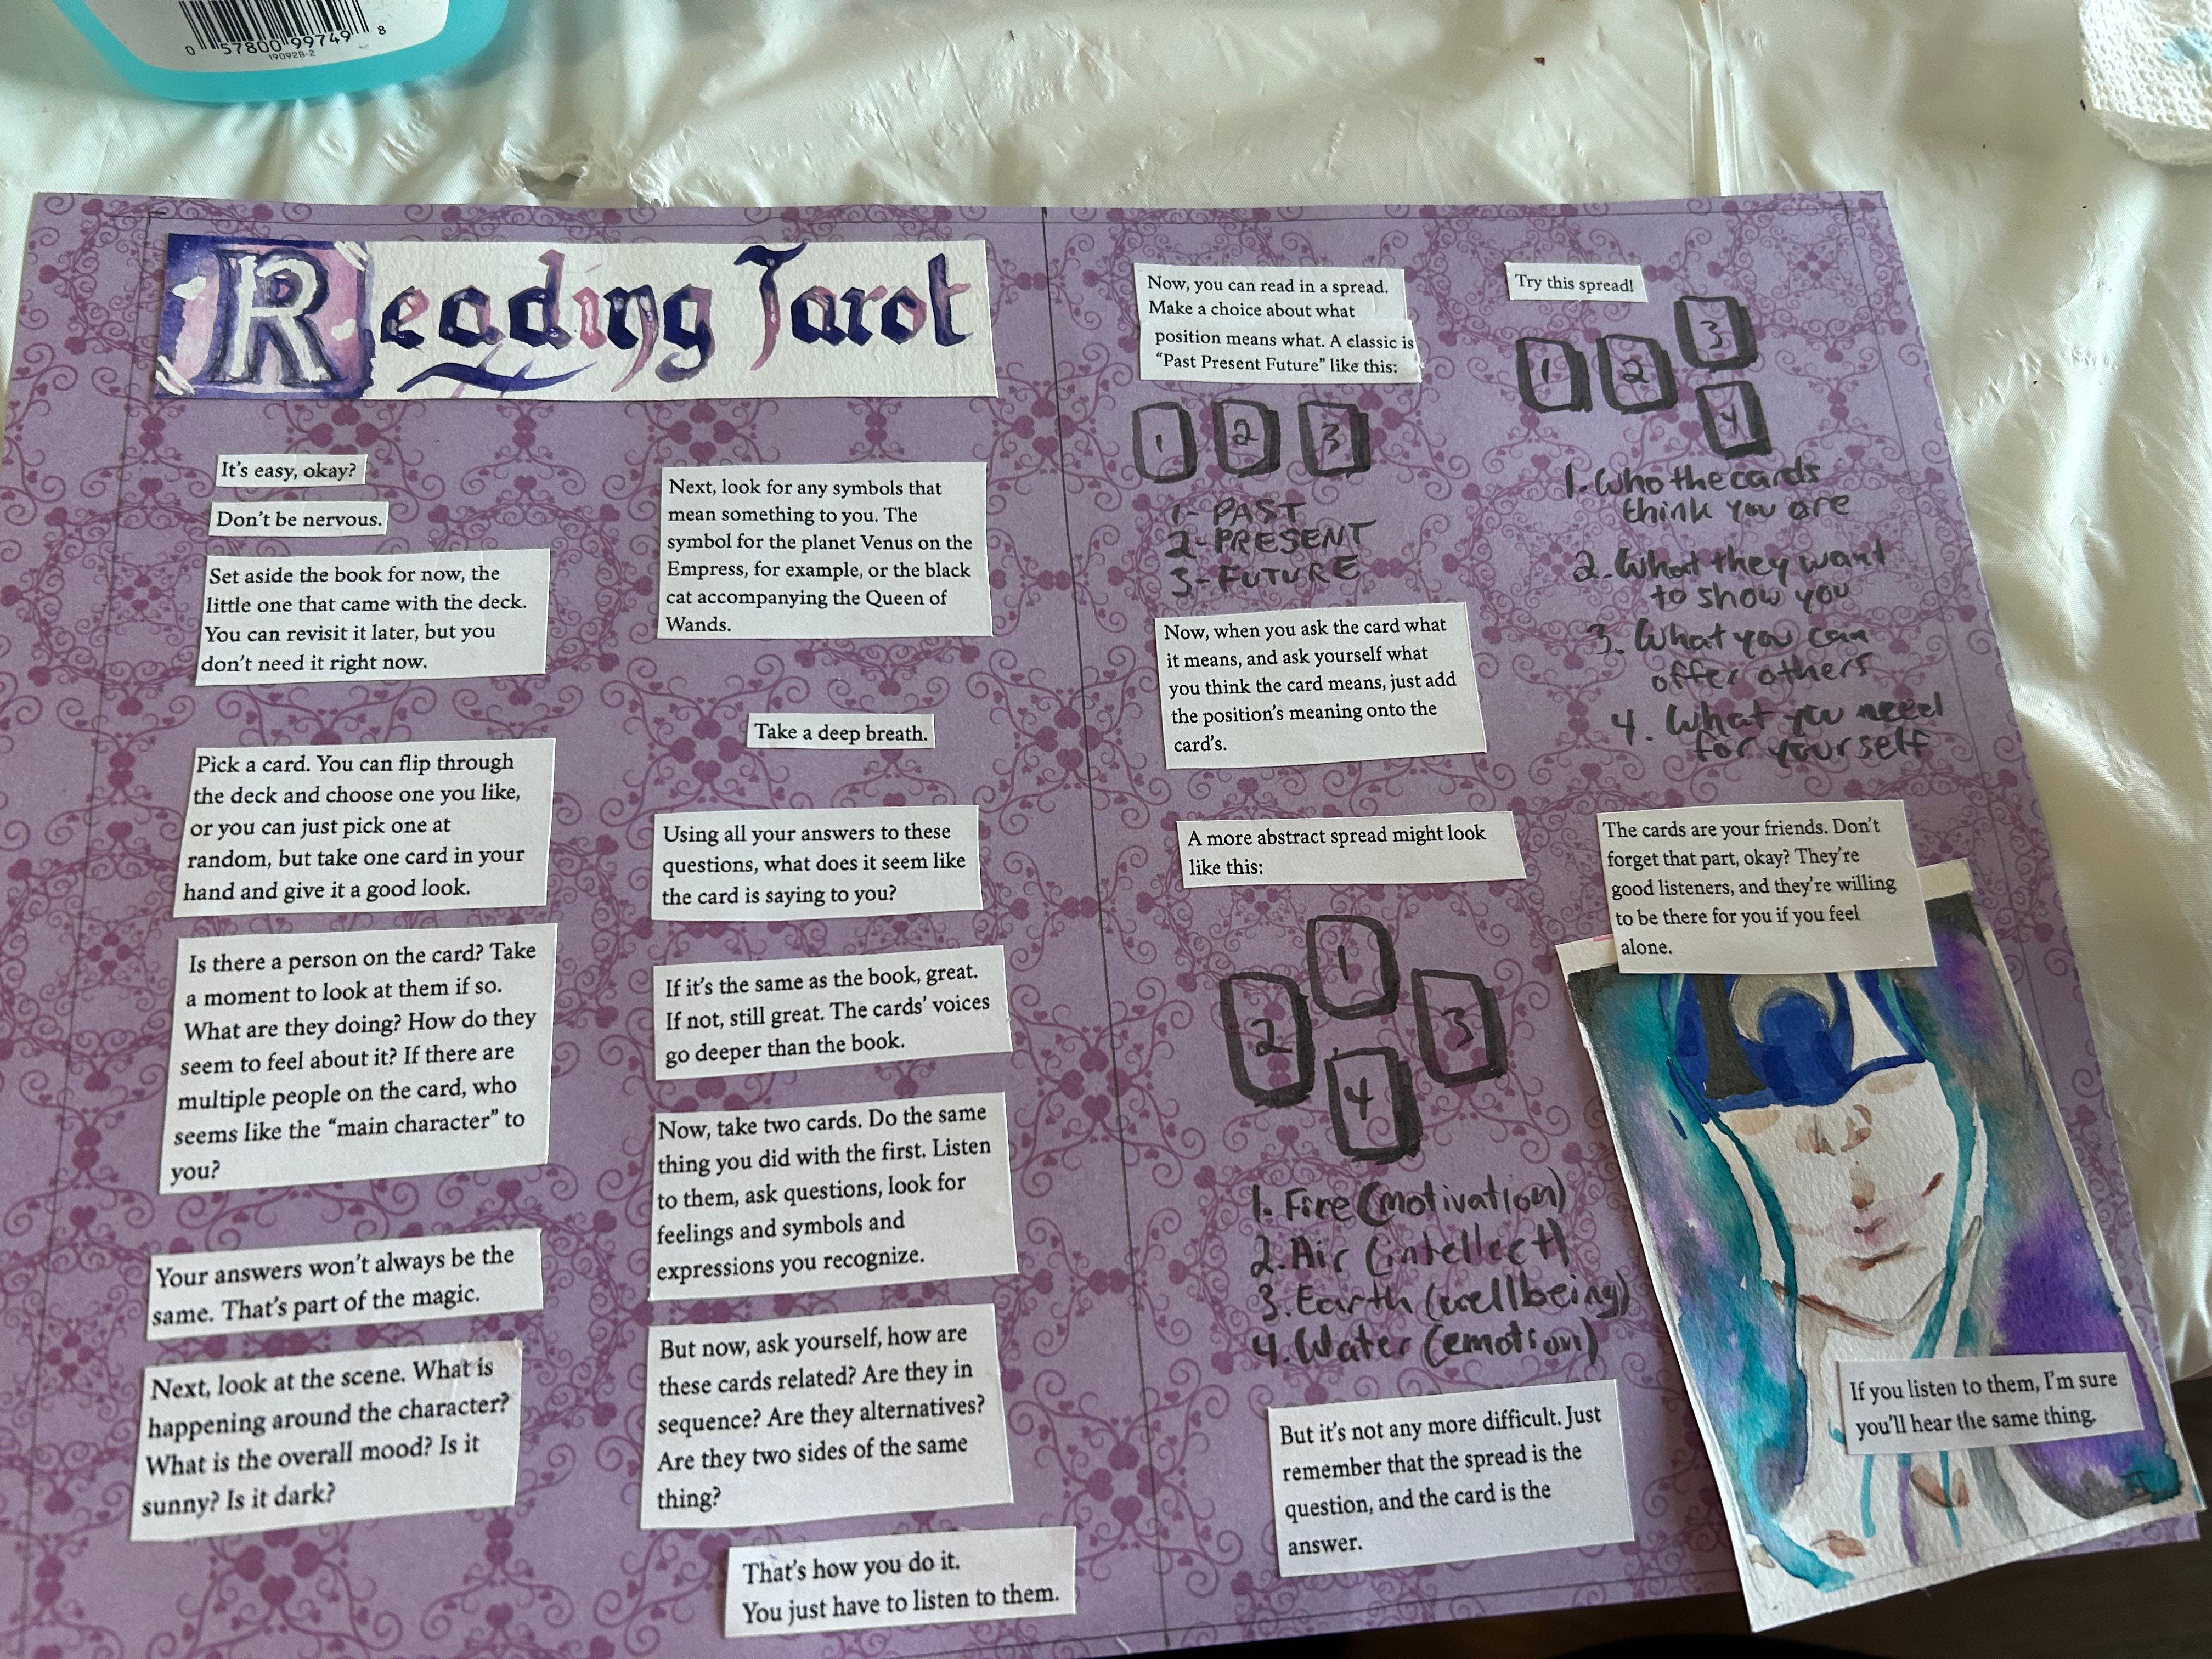 0 57800 99749 8
190928-2
Reading Tarot
It's easy, okay?
Don't be nervous.
Set aside the book for now, the
little one that came with the deck.
You can revisit it later, but you
don't need it right now.
Pick a card. You can flip through
the deck and choose one you like,
or you can just pick one at
random, but take one card in your
hand and give it a good look.
Is there a person on the card? Take
a moment to look at them if so.
What are they doing? How do they
seem to feel about it? If there are
multiple people on the card, who
seems like the “main character” to
you?
Your answers won't always be the
same. That's part of the magic.
Next, look at the scene. What is
happening around the character?
What is the overall mood? Is it
sunny? Is it dark?
Next, look for any symbols that
mean something to you. The
symbol for the planet Venus on the
Empress, for example, or the black
cat accompanying the Queen of
Wands.
Take a deep breath.
Using all your answers to these
questions, what does it seem like
the card is saying to you?
If it's the same as the book, great.
If not, still great. The cards' voices
go deeper than the book.
Now, take two cards. Do the same
thing you did with the first. Listen
to them, ask questions, look for
feelings and symbols and
expressions you recognize.
But now, ask yourself, how are
these cards related? Are they in
sequence? Are they alternatives?
Are they two sides of the same
thing?
That's how you do it.
You just have to listen to them.
Now, you can read in a spread.
Make a choice about what
position means what. A classic is
“Past Present Future” like this:
1 2 3
1- PAST
2- PRESENT
3- FUTURE
Now, when you ask the card what
it means, and ask yourself what
you think the card means, just add
the position's meaning onto the
card's.
A more abstract spread might look
like this:
1
2 3
4
1. Fire (motivation)
2. Air (intellect)
3. Earth (wellbeing)
4. Water (emotion)
But it's not any more difficult. Just
remember that the spread is the
question, and the card is the
answer.
Try this spread!
3
1 2
4
1. Who the cards
think you are
2. What they want
to show you
3. What you can
offer others
4. What you need
for yourself
The cards are your friends. Don't
forget that part, okay? They're
good listeners, and they're willing
to be there for you if you feel
alone.
If you listen to them, I'm sure
you'll hear the same thing.